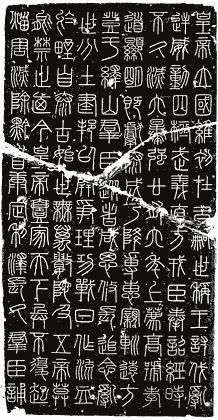 皇帝立國維初在昔嗣世稱王討伐亂
逆威動四極武義直方戎臣奉詔經時
不久滅六暴強廿有六年上薦高號孝
道顯明既獻泰成乃降專惠親巡遠方
登于繹山群臣從者咸思攸長追念亂
世分土建邦以開爭理功戰日作流血
於野自泰古始世無萬數陀及五帝莫
能禁止廼今皇帝壹家天下兵不復起
災害滅除黔首康定利澤長久群臣誦